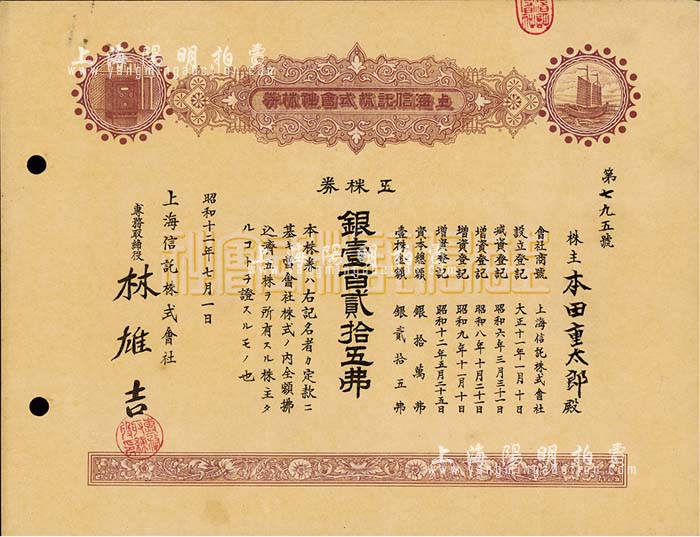 上海信託株式會社株券
上海陽明拍賣
www.yangmingauction.com
第七九五號
株主 本田重太郎殿
會社商號 上海信託株式會社
設立登記 大正十一年一月十日
減資登記 昭和六年三月三十一日
增資登記 昭和八年十月二十一日
增資登記 昭和九年十一月十日
增資登記 昭和十二年五月二十五日
資本總額 銀拾萬弗
壹株金額 銀貳拾五弗
五株券
銀壹百貳拾五弗
本株券ハ右記名者カ定款ニ
基キ當會社株式ノ内全額拂
込濟五株ヲ所有スル株主タ
ルコトヲ證スルモノ也
昭和十二年七月一日
上海信託株式會社
專務取締役 林雄吉
上海信託株式會社
上海陽明拍賣
www.yangmingauction.com